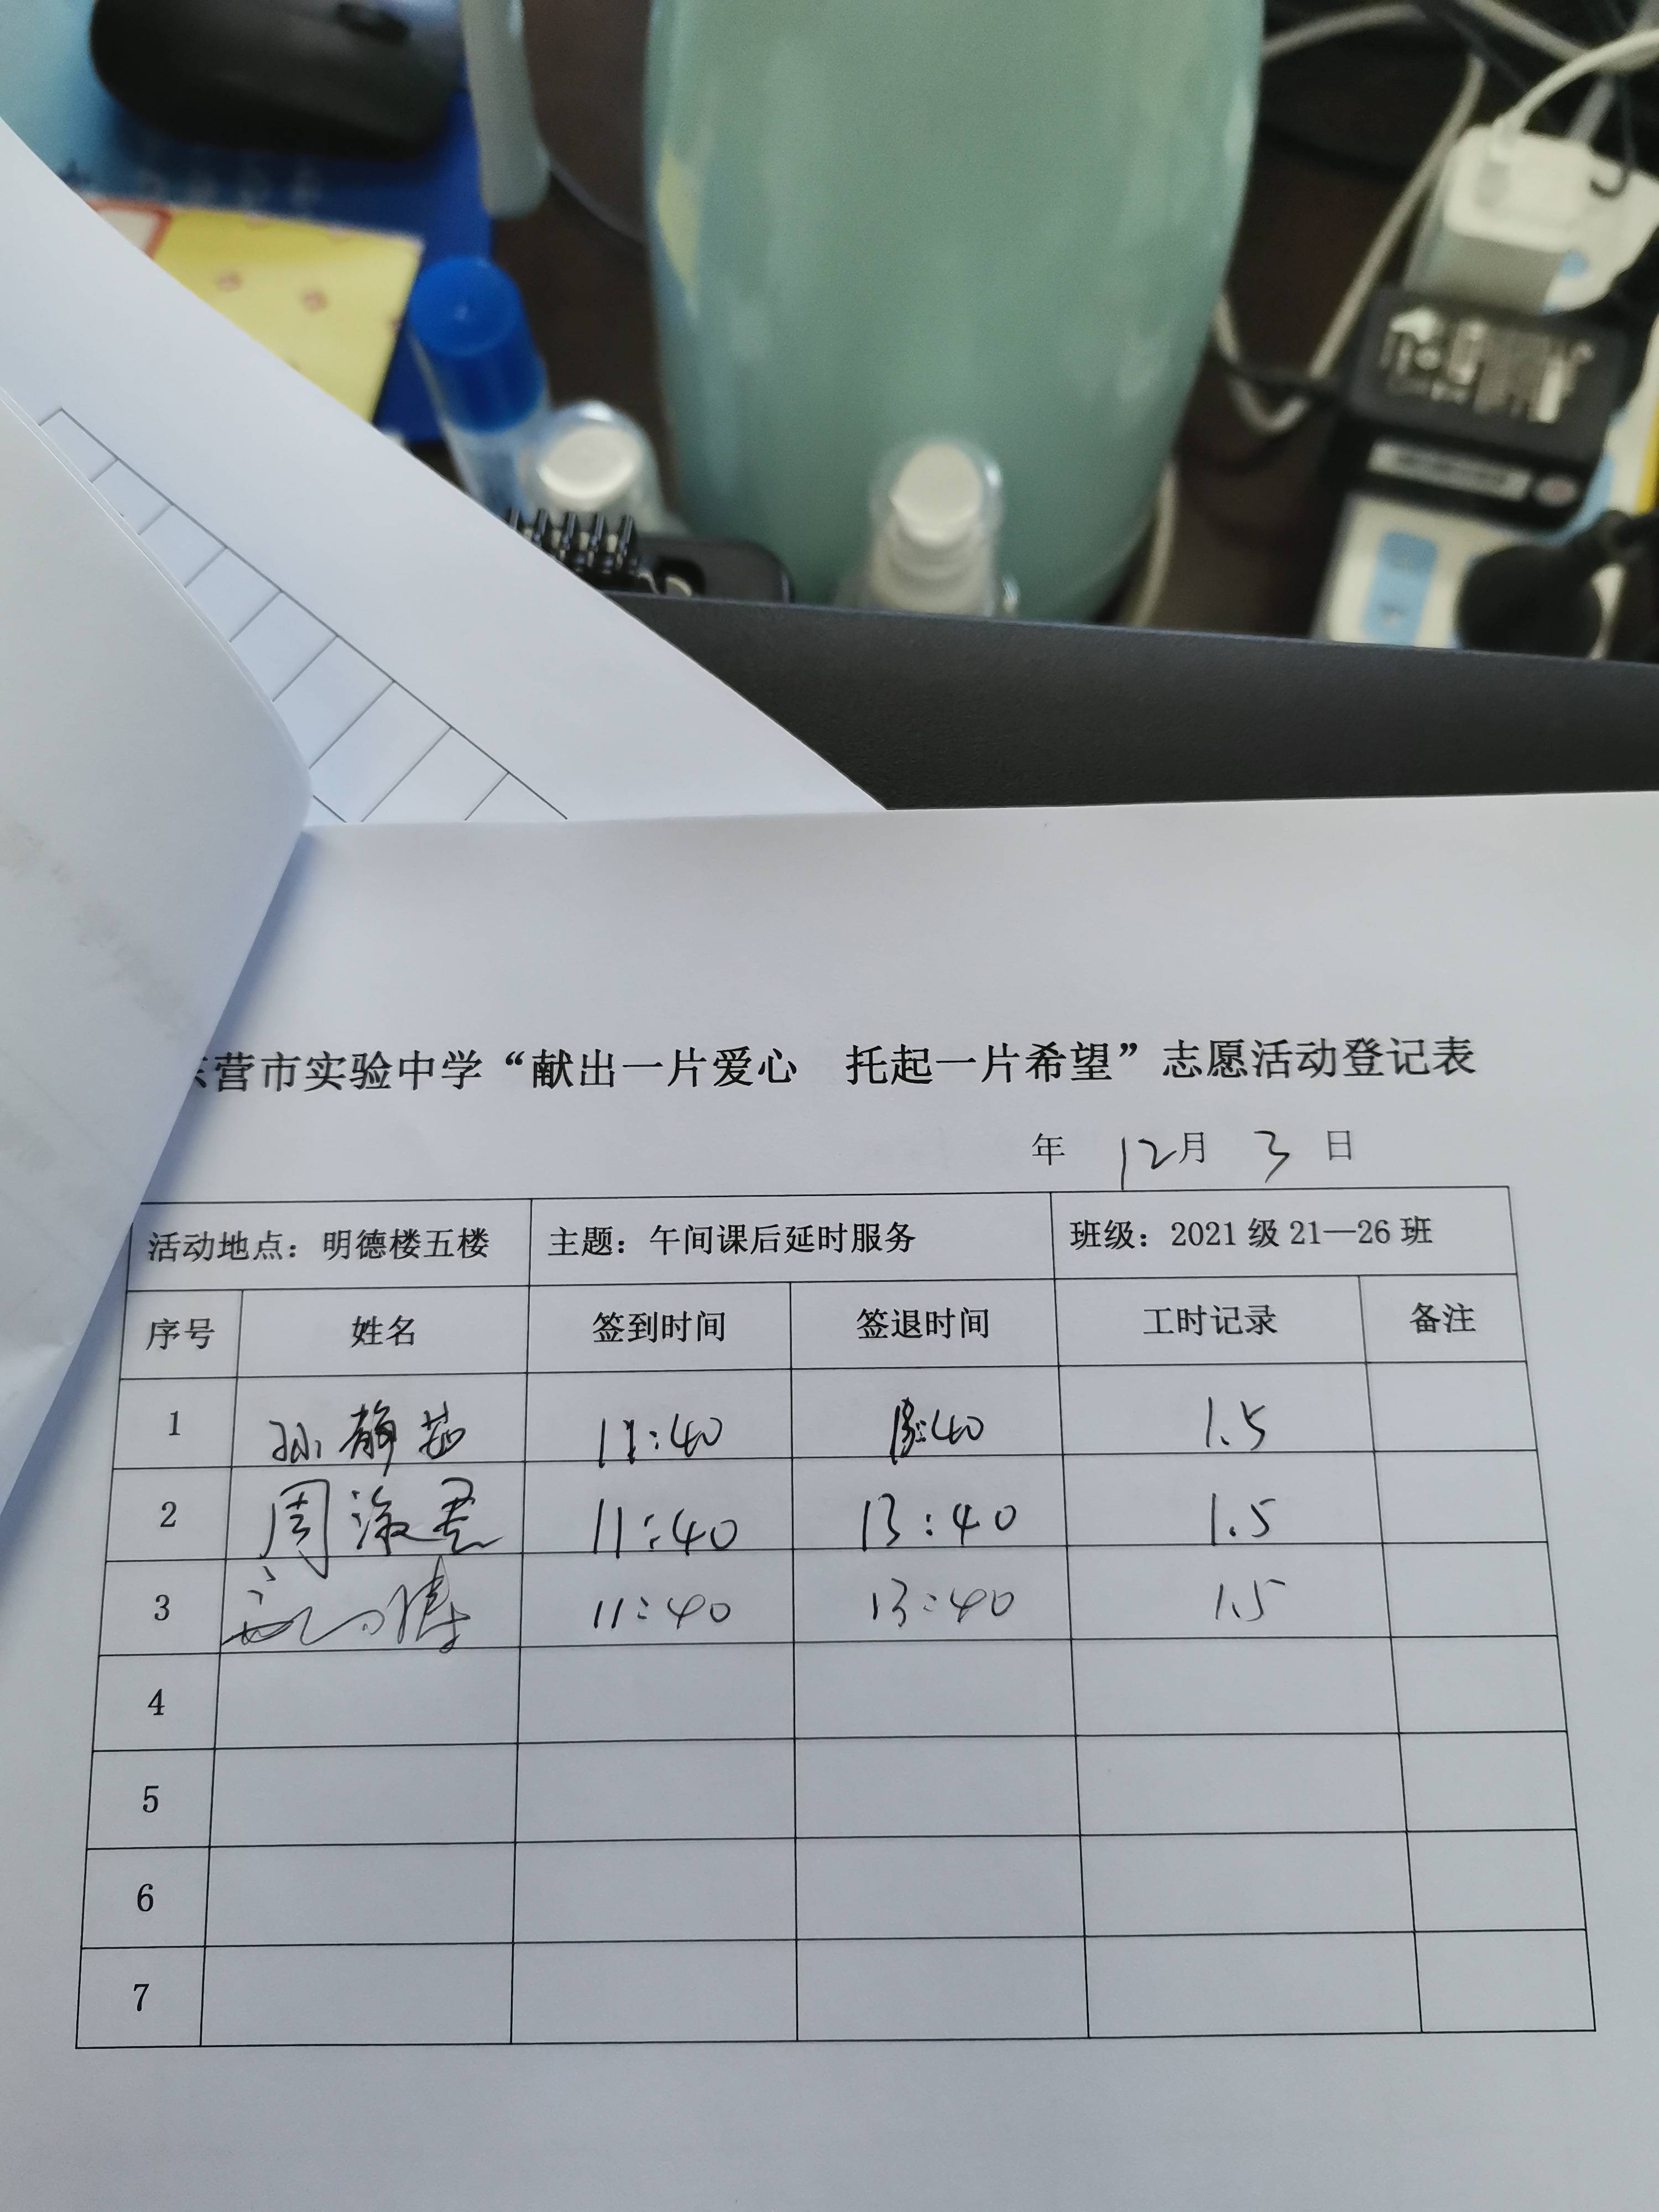 营市实验中学“献出一片爱心 托起一片希望”志愿活动登记表
年 12月 3 日
活动地点：明德楼五楼 主题：午间课后延时服务 班级：2021级21—26班
序号 姓名 签到时间 签退时间 工时记录 备注
1 孙静 11:40 13:40 1.5
2 周淑君 11:40 13:40 1.5
3 11:40 13:40 1.5
4
5
6
7